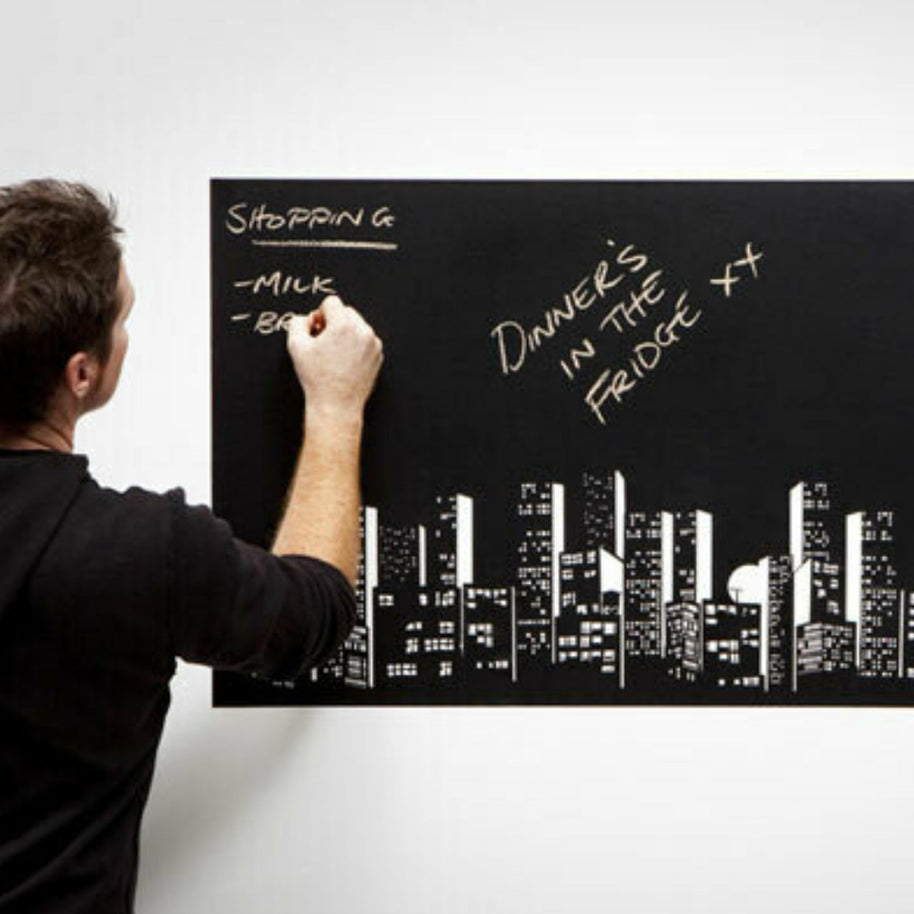 SHOPPING
-MILK
-BR
DINNER'S
IN THE
FRIDGE xx